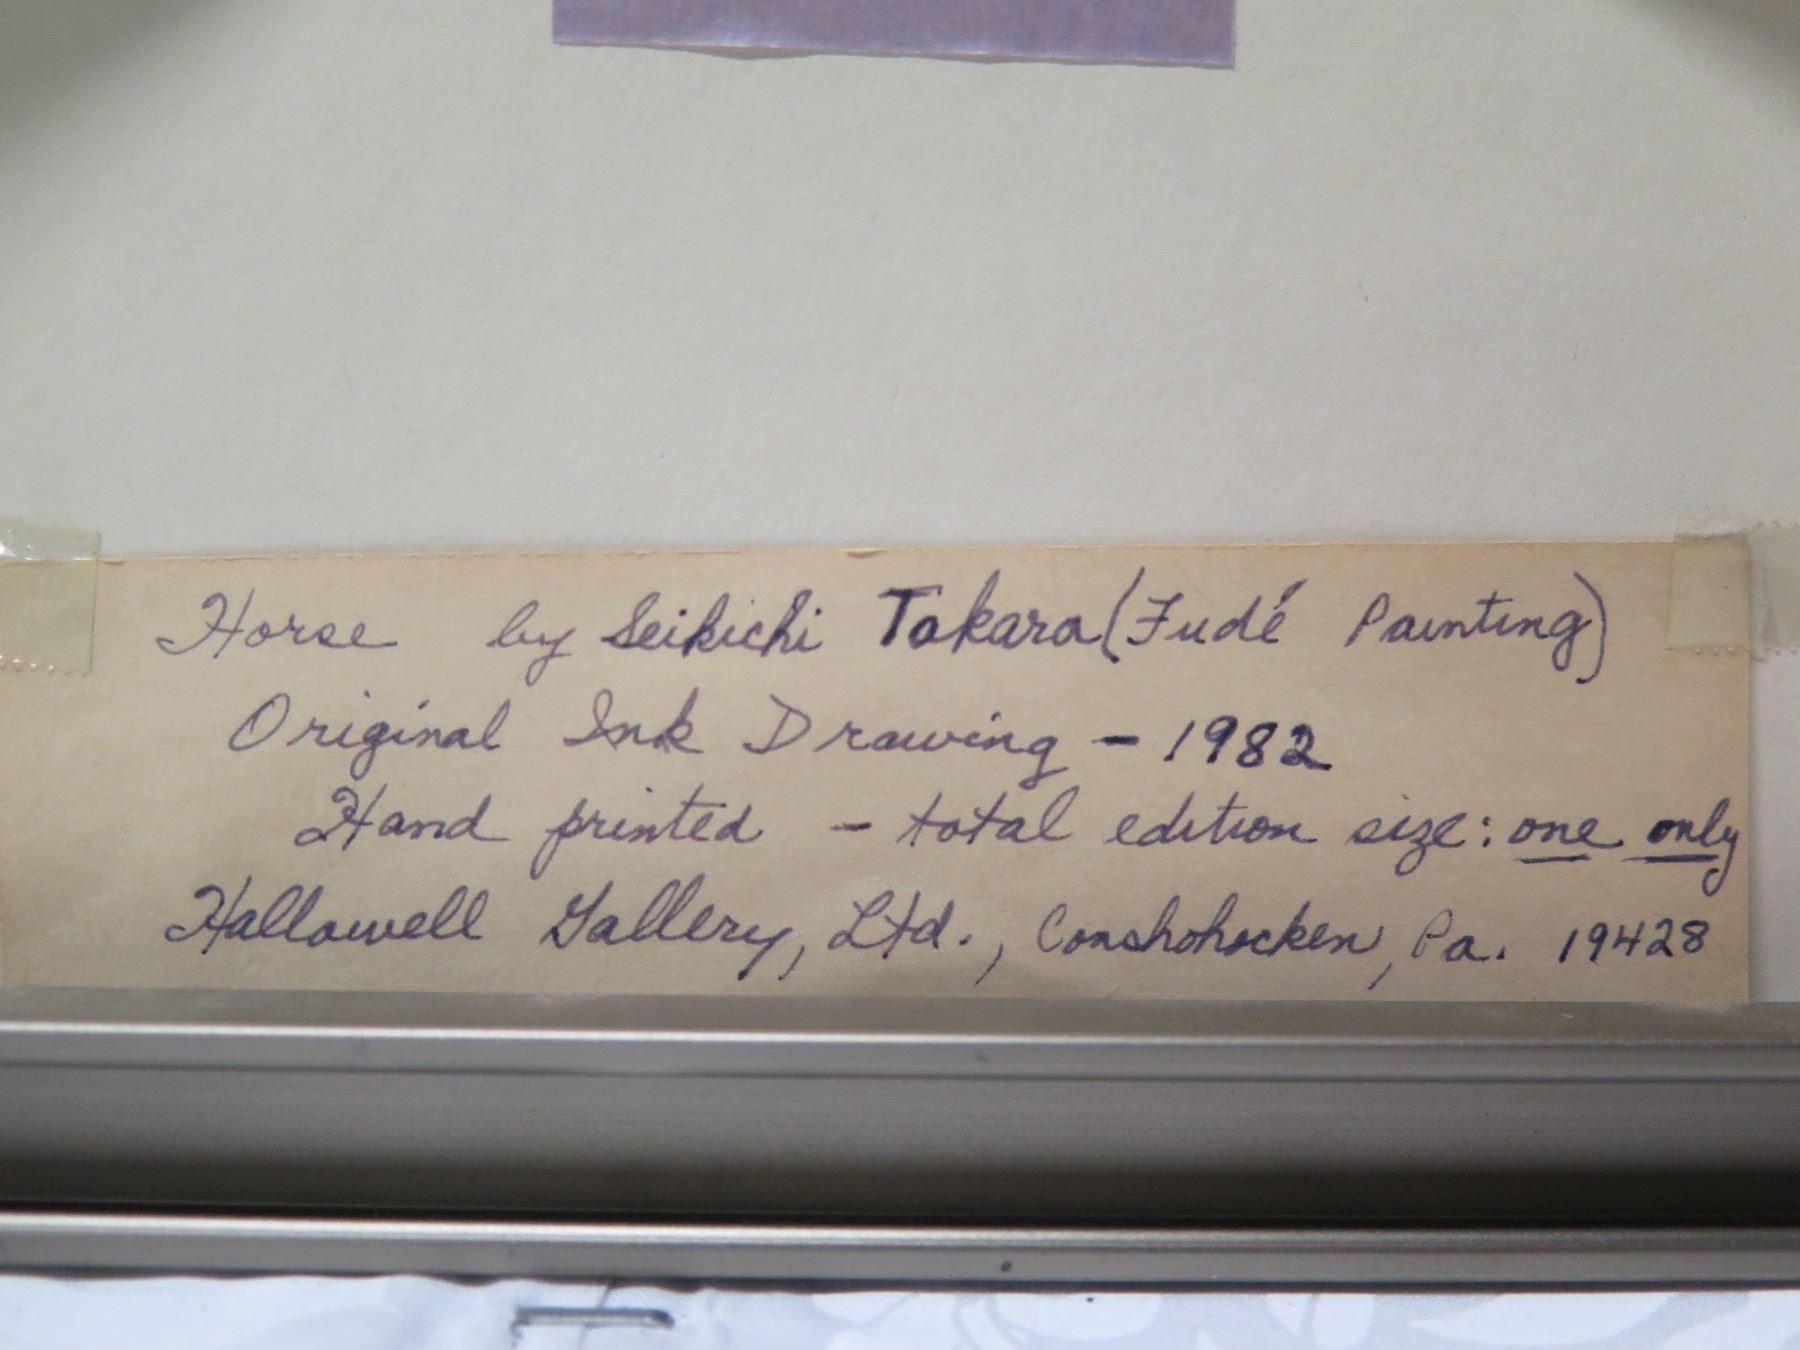 Horse by Seikichi Takara (Fudé Painting)
Original Ink Drawing - 1982
Hand printed - total edition size: one only
Hallowell Gallery, Ltd., Conshohocken, Pa. 19428